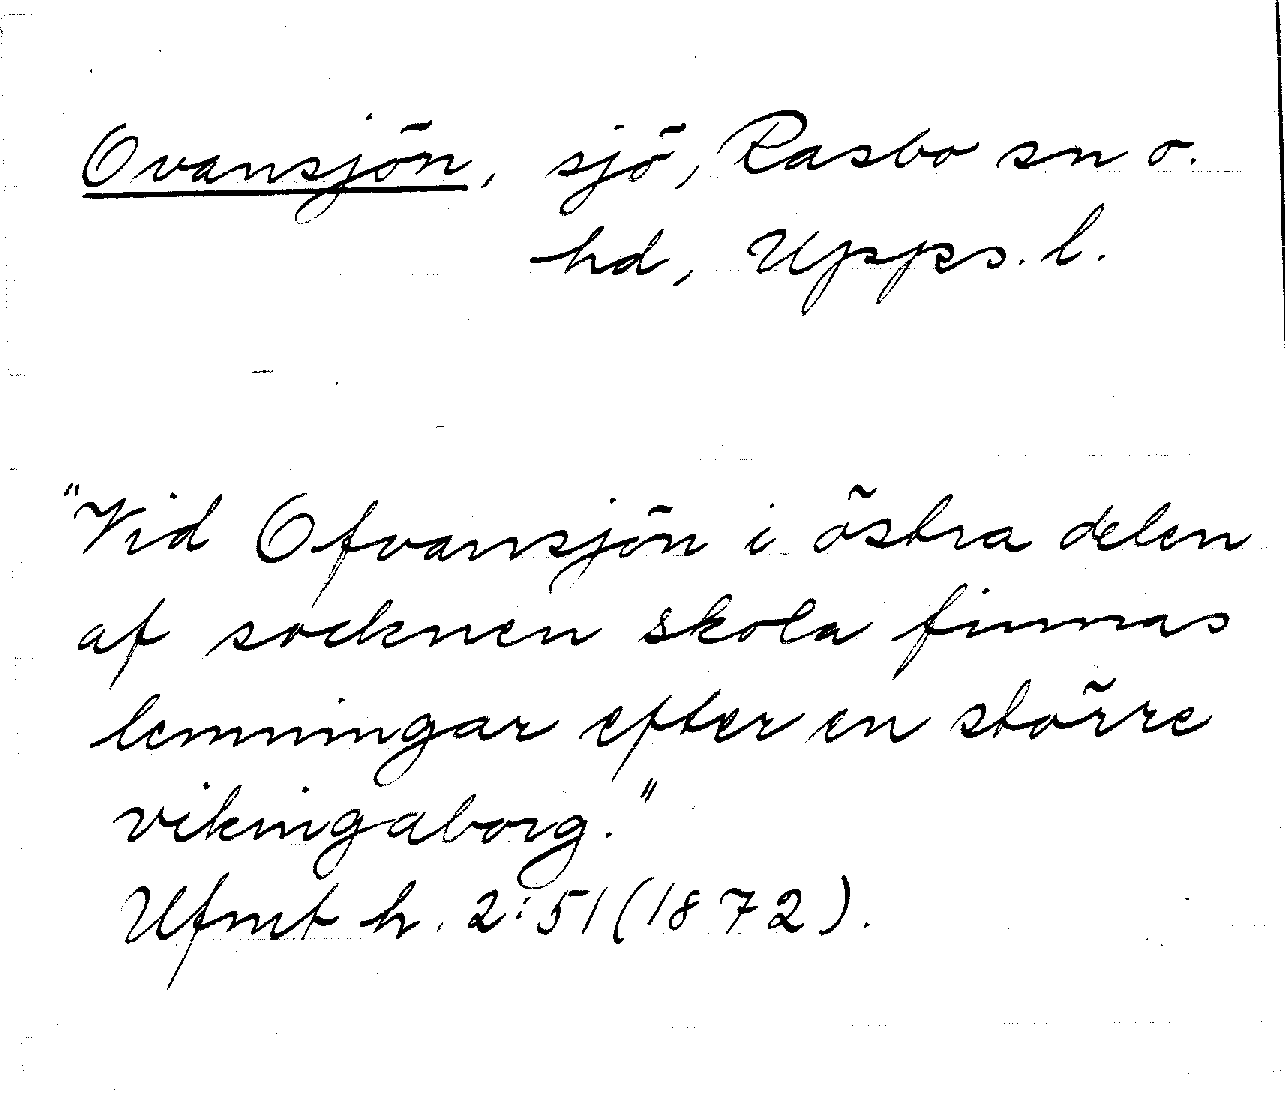 Ovansjön, sjö, Rasbo sn o.
hd, Upps. l.
"Vid Ofvansjön i östra delen
af socknen skola finnas
lemningar efter en större
vikingaborg."
Ufmt h. 2:51 (1872).